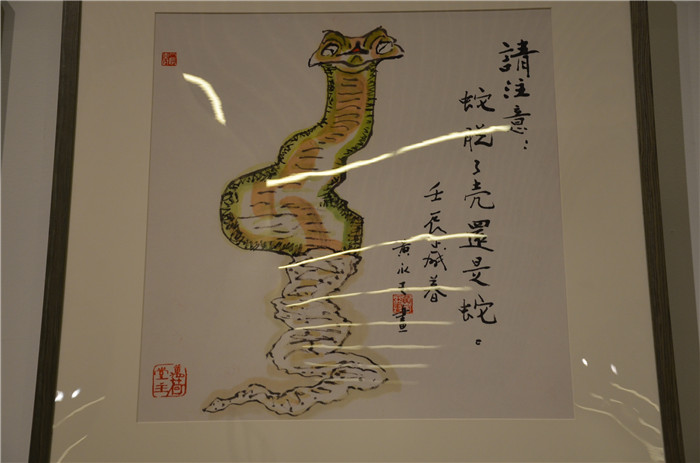 請注意：
蛇脱了壳還是蛇。
壬辰歲暮
黄永玉畫